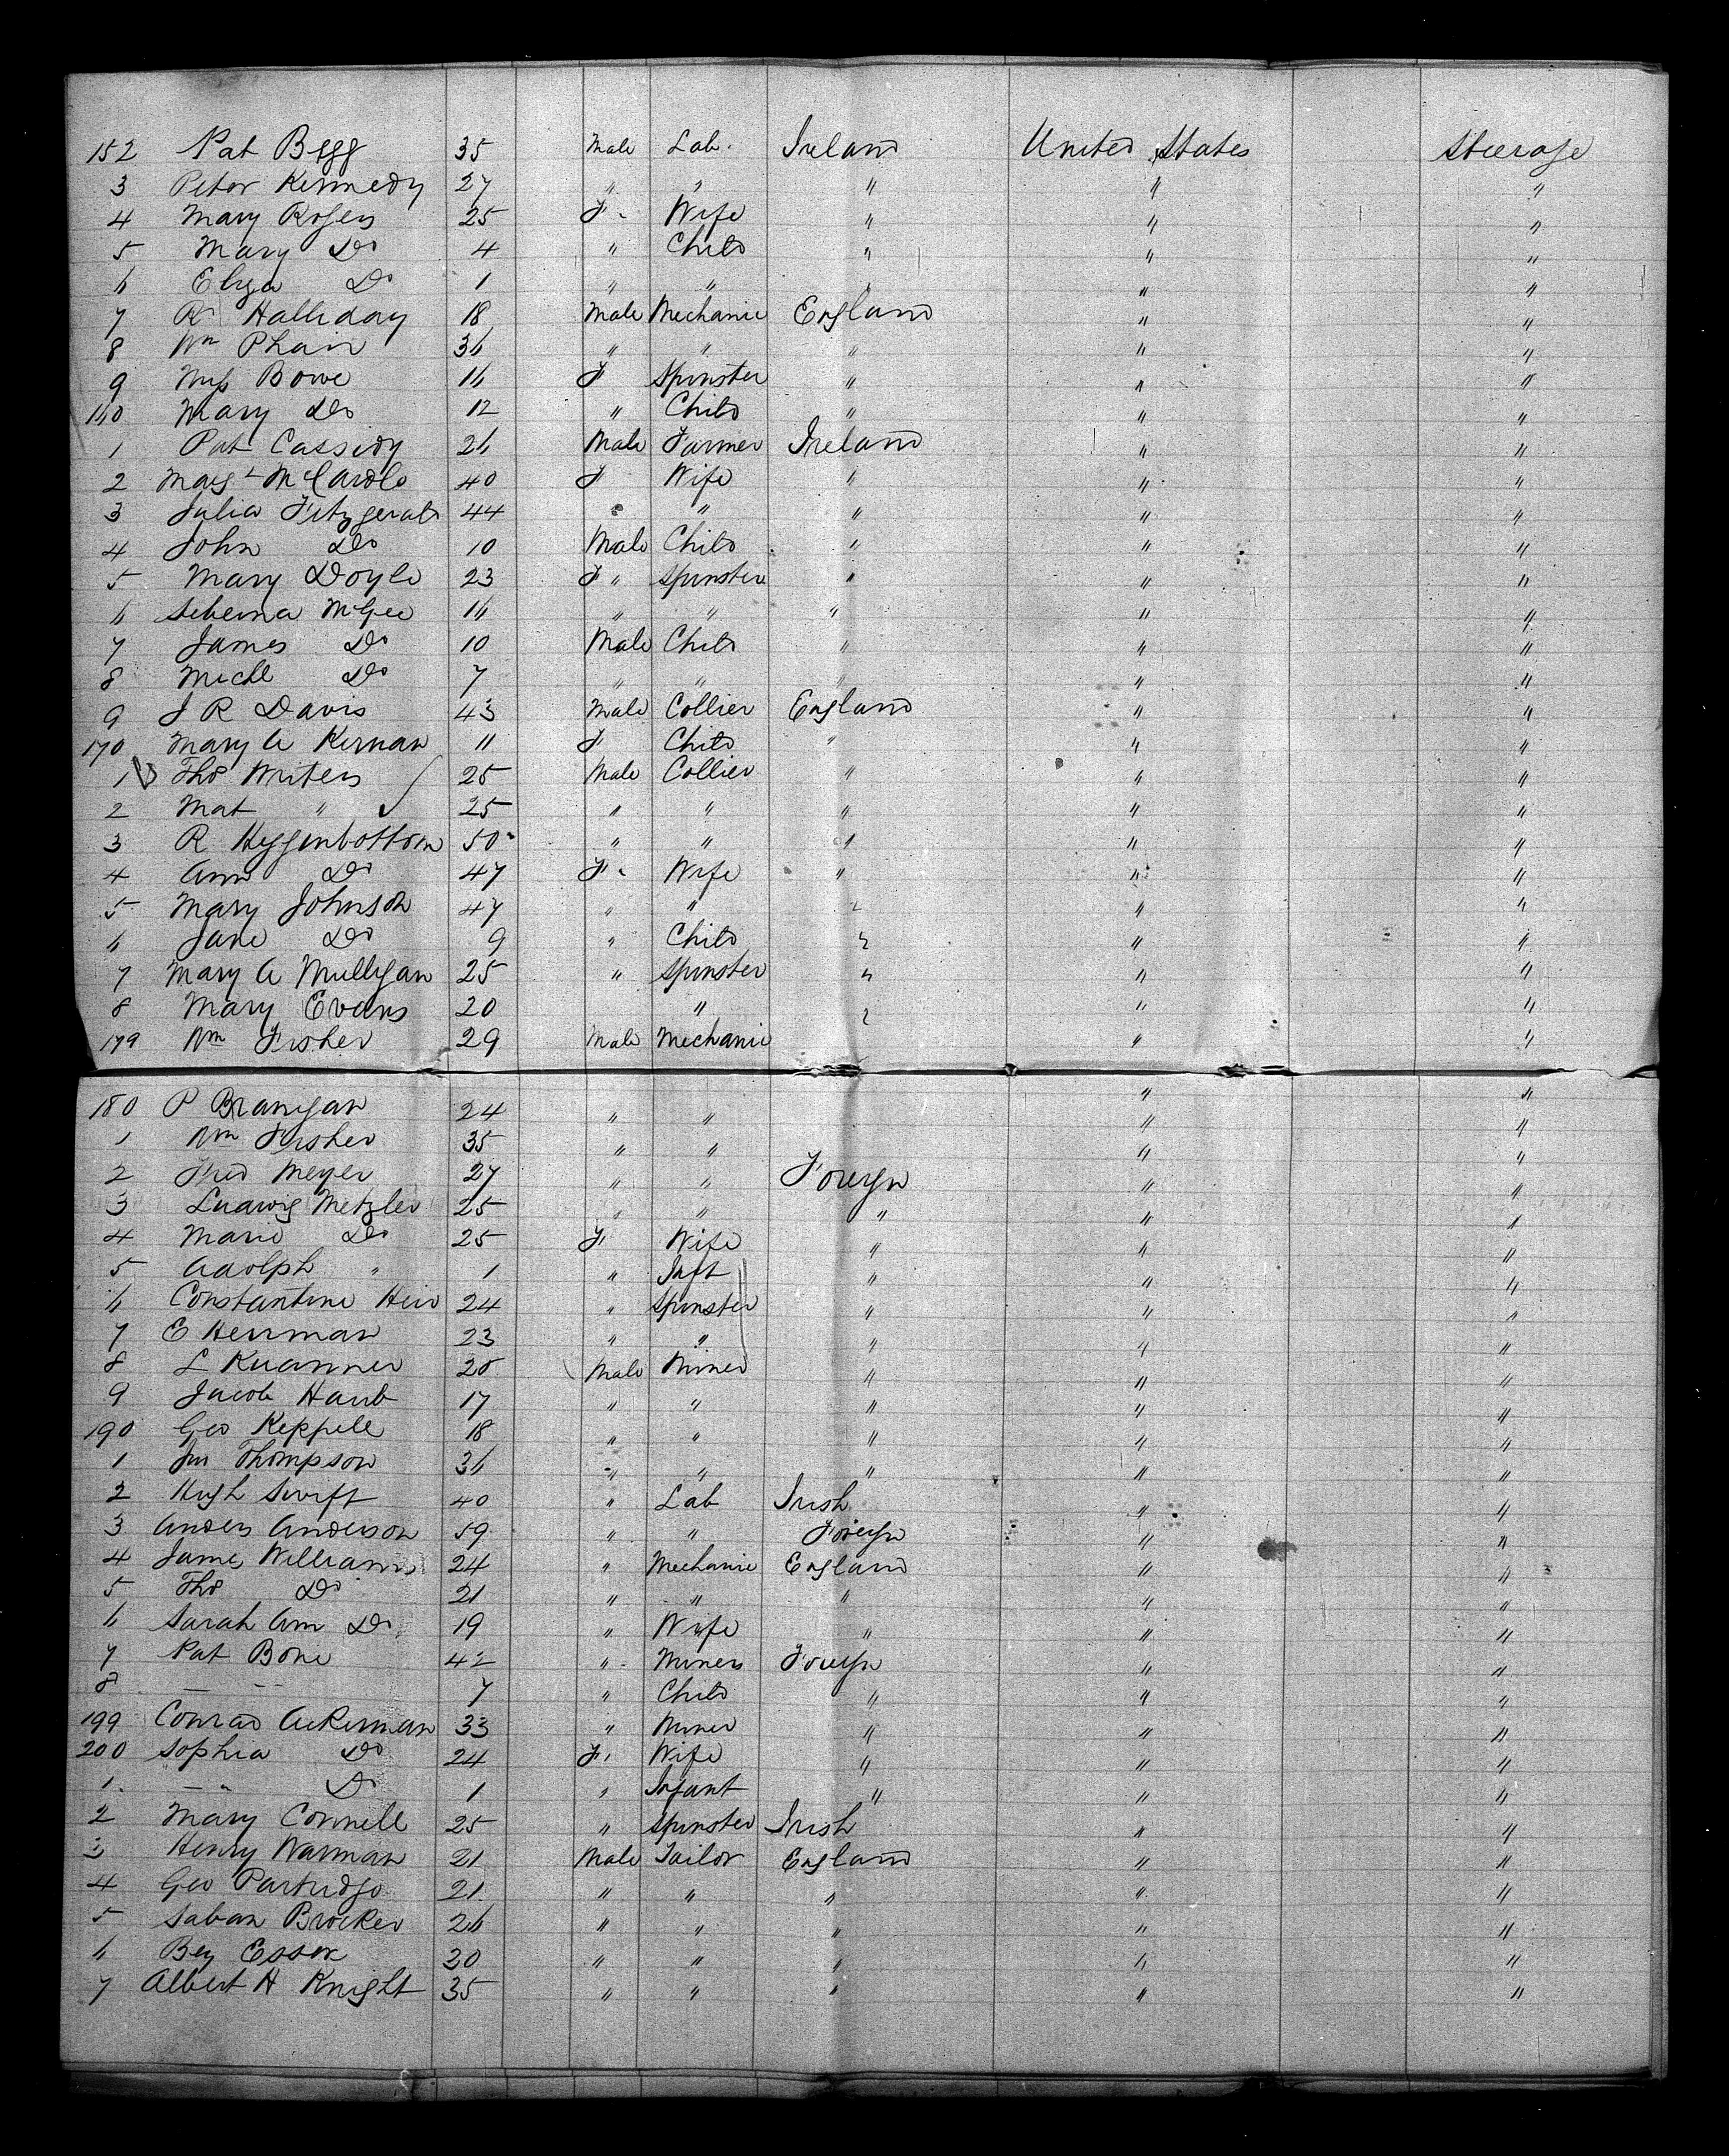 152 Pat Begg 35 Male Lab. Ireland United States Steerage
3 Peter Kennedy 27 " " " " "
4 Mary Rogers 25 F. Wife " " "
5 Mary Do 4 " Child " " "
6 Eliza Do 1 " " " " "
7 R Halliday 18 Male Mechanic England " "
8 Wm Phair 36 " " " " "
9 Miss Bowe 16 F Spinster " " "
160 Mary Do 12 " Child " " "
1 Pat Cassidy 26 Male Farmer Ireland " "
2 Margt McCardle 40 F Wife " " "
3 Julia Fitzgerald 44 " " " " "
4 John Do 10 Male Child " " "
5 Mary Doyle 23 F " Spinster " " "
6 McGee 16 " " " " "
7 James Do 10 Male Child " " "
8 Michl Do 7 " " " " "
9 J R Davis 43 Male Collier England " "
170 Mary A Kernan 11 F Child " " "
1 Thos 25 Male Collier " " "
2 Mat " 25 " " " " "
3 R Heggenbottom 50 " " " " "
4 Ann Do 47 F. Wife " " "
5 Mary Johnson 47 " " " " "
6 Jane Do 9 " Child " " "
7 Mary A Mulligan 25 " Spinster " " "
8 Mary Evans 20 " " " "
179 Wm Fisher 29 Male Mechanic " "
180 P Branigan 24 " " " "
1 Wm Fisher 35 " " " "
2 Fred Meyer 27 " " Foreign " "
3 Ludwig Metzler 25 " " " " "
4 Marie Do 25 F. Wife " " "
5 Adolph " 1 " Inft " " "
6 Constantine 24 " Spinster " " "
7 E Herrman 23 " " " " "
8 L 20 Male Miner " " "
9 Jacob Haub 17 " " " " "
190 Geo Keppell 18 " " " " "
1 Jno Thompson 36 " " " " "
2 Hugh Swift 40 " Lab Irish " "
3 Anders Anderson 59 " " Foreign " "
4 James Williams 24 " Mechanic England " "
5 Thos Do 21 " " " " "
6 Sarah Ann Do 19 " Wife " " "
7 Pat Bone 42 " Miners Foreign " "
8 — — 7 " Child " " "
199 Conrad Ackerman 33 " Miner " " "
200 Sophia Do 24 F. Wife " " "
1 — " Do 1 " Infant " " "
2 Mary Connell 25 " Spinster Irish " "
3 Henry Warman 21 Male Tailor England " "
4 Geo Partridge 21 " " " " "
5 Saban Brocker 26 " " " " "
6 Benj Essex 30 " " " " "
7 Albert H Knight 35 " " " " "